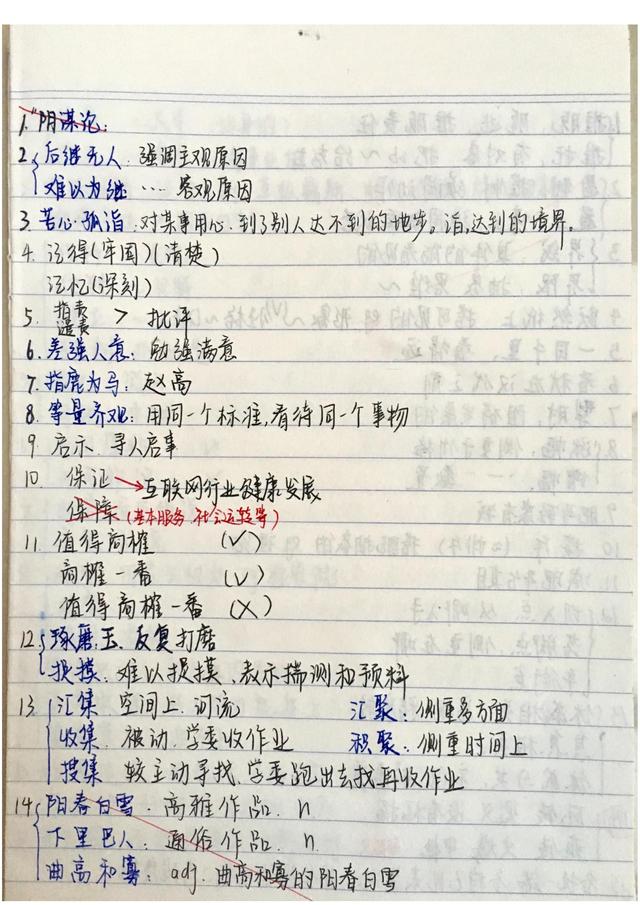 1."阴谋论:
2.后继无人. 强调主观原因
难以为继 … 客观原因
3.苦心孤诣. 对某事用心.到了别人达不到的地步。诣,达到的境界。
4. 记得(牢固)(清楚)
记忆(深刻)
5. 指责 谴责 > 批评
6. 差强人意: 勉强满意
7. 指鹿为马: 赵高
8. 等量齐观: 用同一个标准,看待同一个事物
9 启示. 寻人启事
10. 保证→互联网行业健康发展
保障(基本服务.社会运转等)
11. 值得商榷 (√)
商榷一番 (√)
值得商榷一番 (×)
12.琢磨:玉.反复打磨
捉摸:难以捉摸.表示揣测和预料
13 汇集 空间上.河流 汇聚:侧重多方面
收集.被动.学委收作业 积聚:侧重时间上
搜集 较主动寻找.学委跑出去找再收作业
14 阳春白雪.高雅作品. n
下里巴人.通俗作品. n
曲高和寡: adj. 曲高和寡的阳春白雪